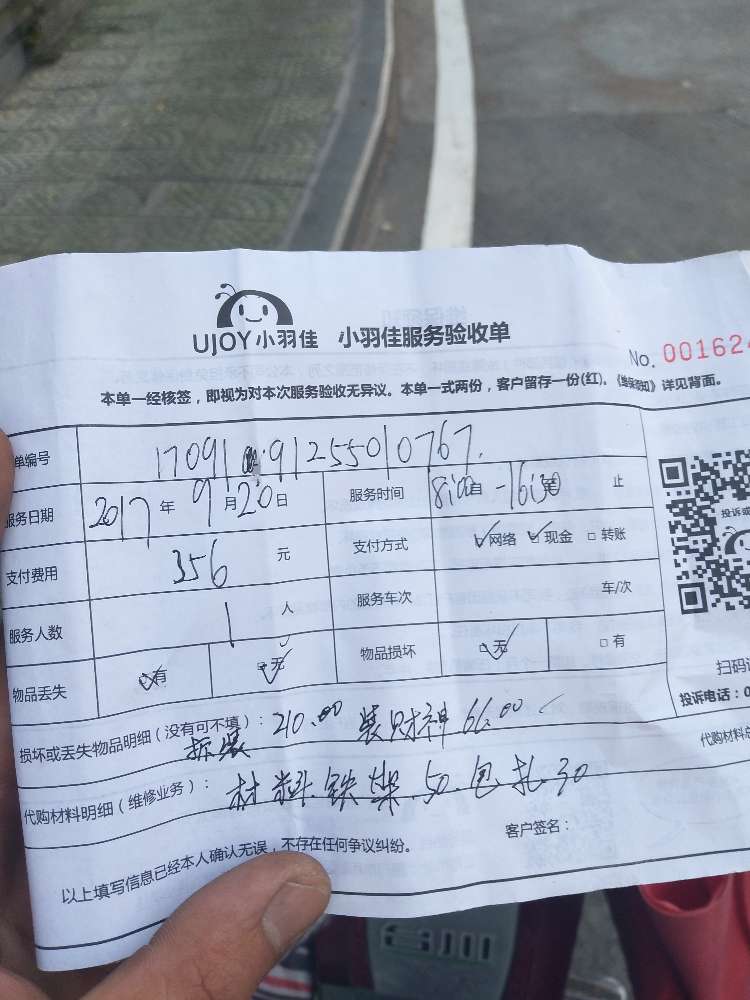 UJOY小羽佳 小羽佳服务验收单
No. 001624
本单一经核签，即视为对本次服务验收无异议。本单一式两份，客户留存一份(红)。《维保须知》详见背面。
单编号 17091 9125501 0767.
服务日期 2017年9月20日 服务时间 8:00自-16:30 止
支付费用 356 元 支付方式 网络 现金 转账
服务人数 1 人 服务车次 车/次
物品丢失 有 无 物品损坏 无 有
扫码
投诉电话：0
损坏或丢失物品明细（没有可不填）：拆装 210.00 装财神 66.00
代购材料明细（维修业务）：材料.铁架.50.包扎.30
代购材料总
客户签名：
以上填写信息已经本人确认无误，不存在任何争议纠纷。
投诉或
台川